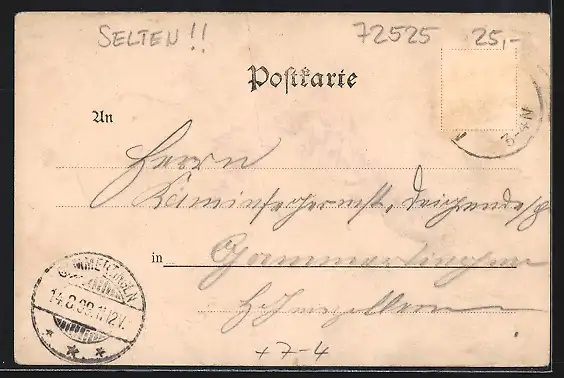 SELTEN!! 72525 25,-
Postkarte
An
3-4N
Herrn
Kaminfegermst,
in Gammertingen
GAMMERTINGEN
14.8.99.11-12V.
Hohenzollern
+7-4